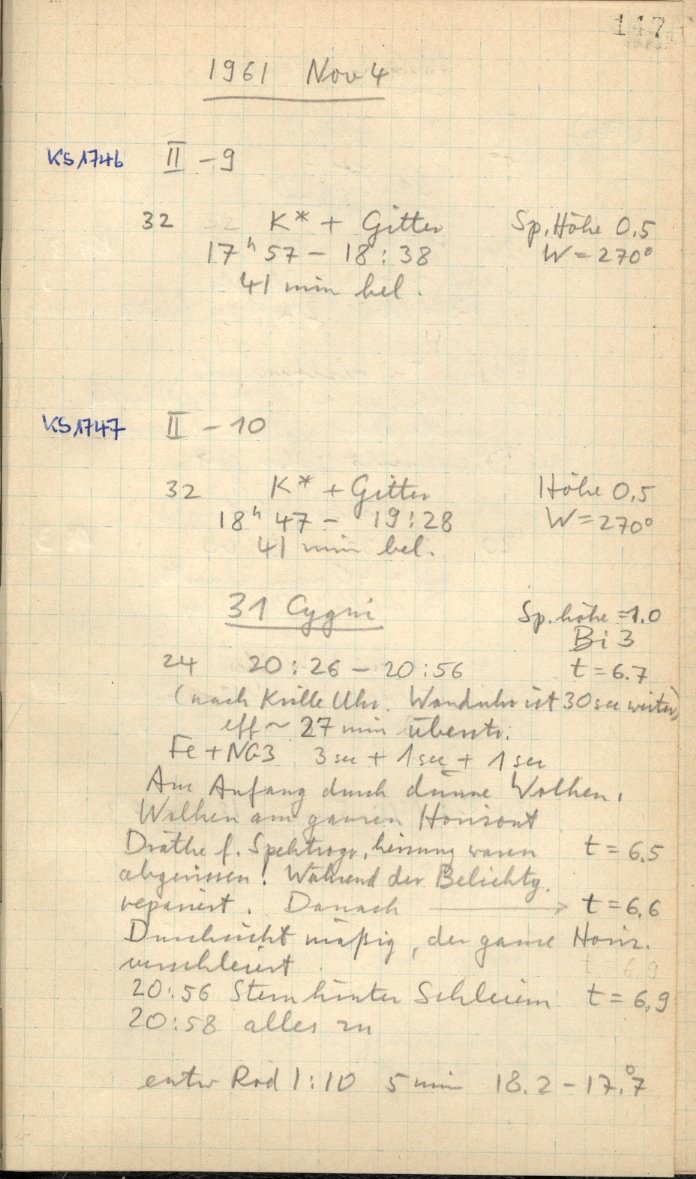 147
1961 Nov 4
KS1746 II - 9
32 K* + Gitter Sp. Höhe 0,5
17h 57 - 18:38 W = 270°
41 min bel.
KS1747 II - 10
32 K* + Gitter Höhe 0,5
18h 47 - 19:28 W = 270°
41 min bel.
31 Cygni
Sp. höhe = 1.0
Bi 3
24 20:26 - 20:56 t = 6.7
(nach Uhr. Wanduhr ist 30 sec weiter)
eff ~ 27 min
Fe + NG3 3 sec + 1 sec + 1 sec
Am Anfang durch dünne Wolken.
Wolken am ganzen Horizont
Dräthe f. Spektrogr. heizung waren t = 6,5
abgerissen! Während der Belichtg.
repariert. Danach → t = 6,6
Durchsicht mäßig, der ganze Horiz.
verschleiert
20:56 Stern hinter Schleiern t = 6,9
20:58 alles zu
entw Rod 1:10 5 min 18.2 - 17.°7